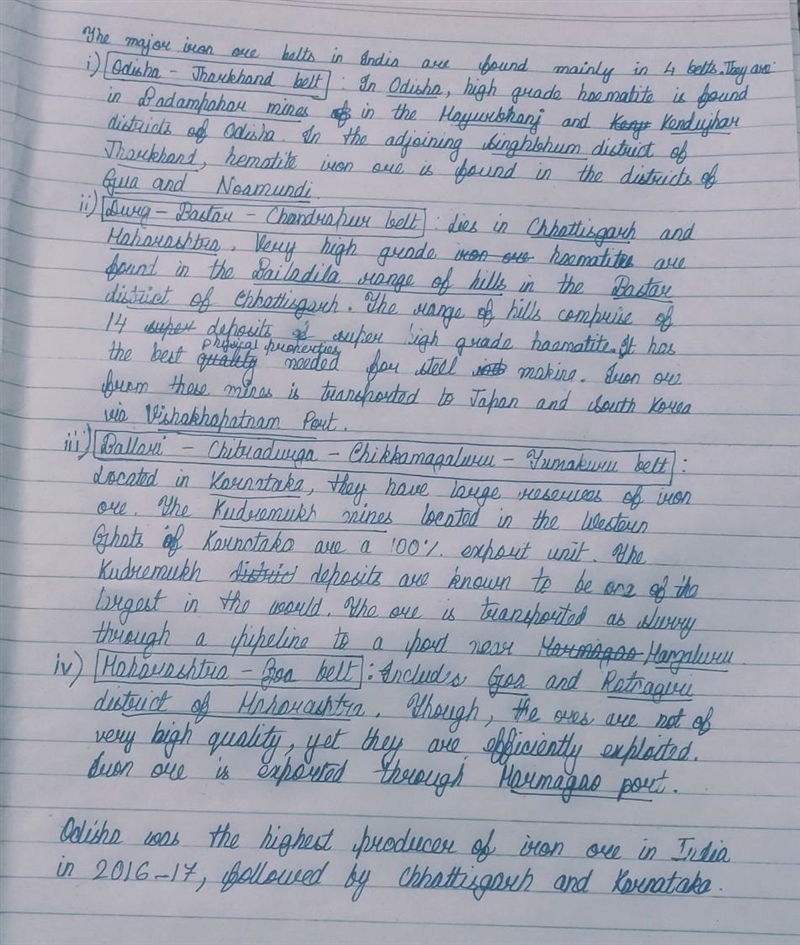 The major iron ore belts in India are found mainly in 4 belts. They are:
i) Odisha - Jharkhand belt : In Odisha, high grade haematite is found
in Badampahar mines of in the Mayurbhanj and Keny Kendujhar
districts of Odisha. In the adjoining Singhbhum district of
Jharkhand, hematite iron ore is found in the districts of
Gua and Noamundi.
ii) Durg - Bastar - Chandrapur belt : lies in Chhattisgarh and
Maharashtra. Very high grade iron ore haematites are
found in the Bailadila range of hills in the Bastar
district of Chhattisgarh. The range of hills comprise of
14 super deposits of super high grade haematite. It has
the best quality physical properties needed for steel making. Iron ore
from these mines is transported to Japan and South Korea
via Vishakhapatnam Port.
iii) Ballari - Chitradurga - Chikkamagaluru - Tumakuru belt :
Located in Karnataka, they have large reserves of iron
ore. The Kudremukh mines located in the Western
Ghats of Karnataka are a 100% export unit. The
Kudremukh district deposits are known to be one of the
largest in the world. The ore is transported as slurry
through a pipeline to a port near Marmagao Mangaluru
iv) Maharashtra - Goa belt : Includes Goa and Ratnagiri
district of Maharashtra. Though, the ores are not of
very high quality, yet they are efficiently exploited.
Iron ore is exported through Marmagao port.
Odisha was the highest producer of iron ore in India
in 2016-17, followed by Chhattisgarh and Karnataka.